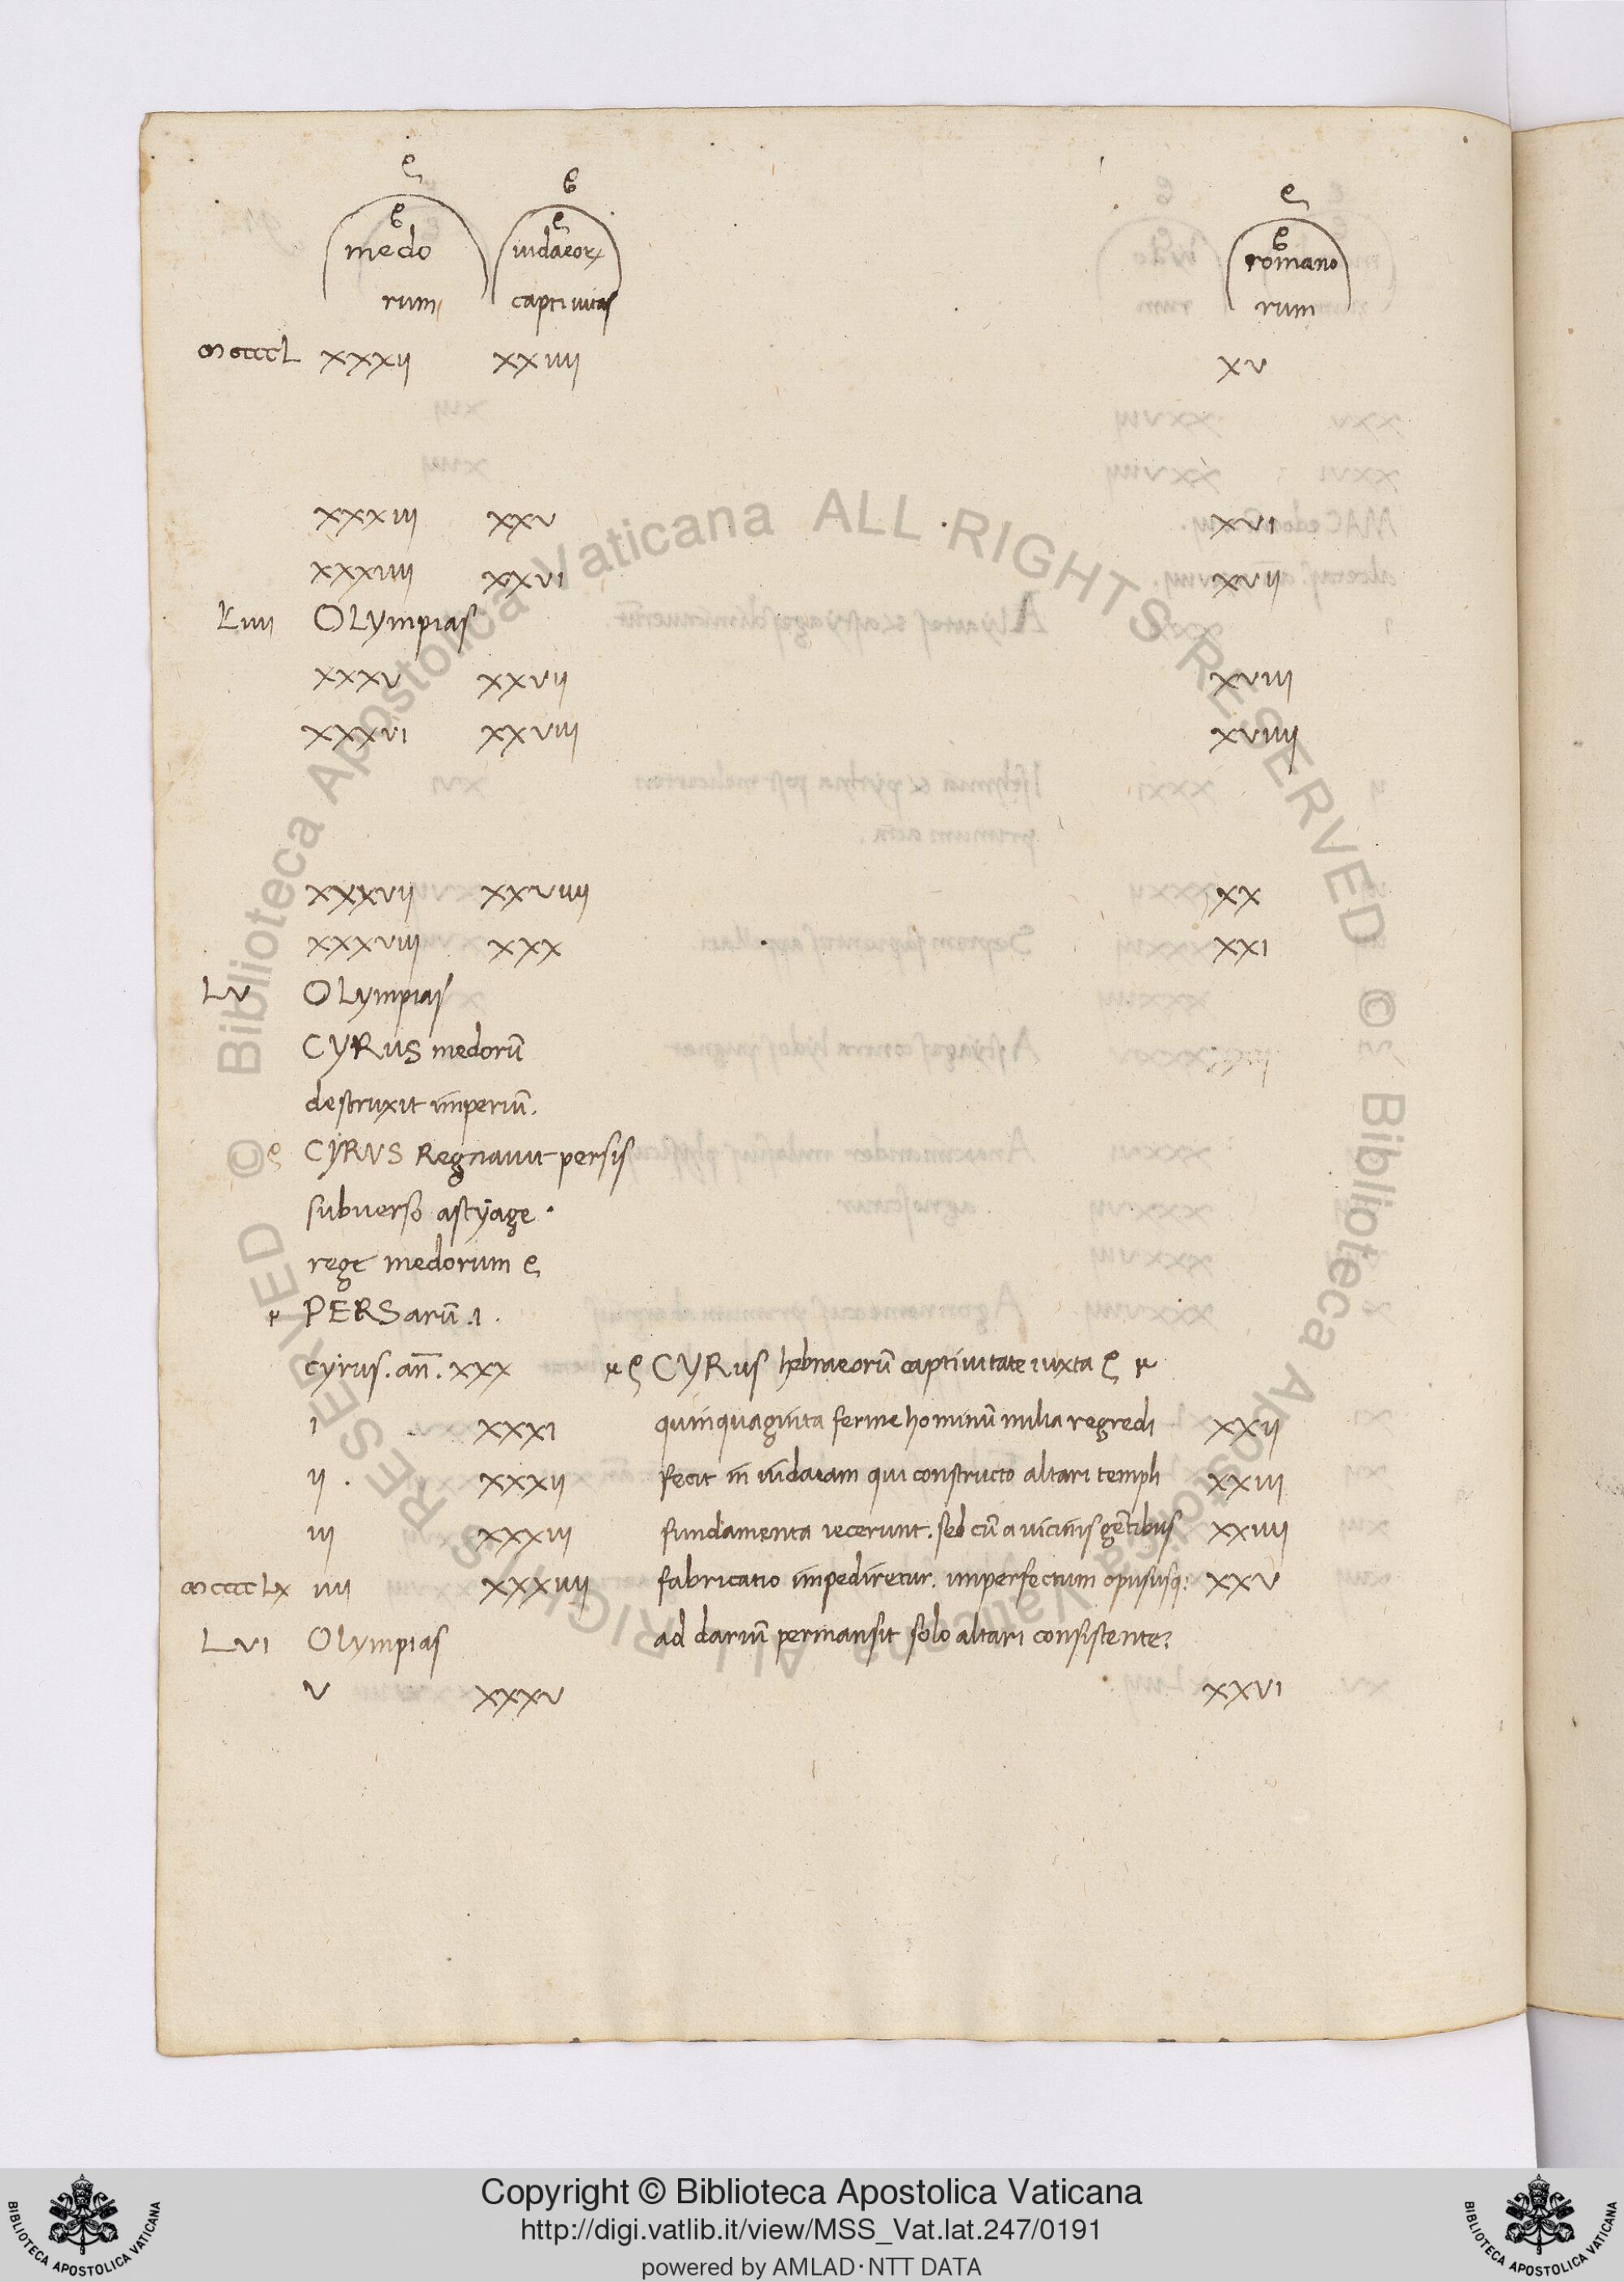 medo iudaeorꝝ romano
rum captiuitas rum
ꝏccccL xxxii xxiiii xv
xxxiii xxv xvi
xxxiiii xxvi xvii
Liiii OLympias
xxxv xxvii xviii
xxxvi xxviii xviiii
xxxvii xxviiii xx
xxxviii xxx xxi
Lv OLympias
CYRus medorū
destruxit imperiū.
CYRVS Regnauit persis
subuerso astyage.
rege medorum
PERSarū .i.
cyrus. an̄. xxx CYRus hebraeorū captiuitate iuxta
i xxxi quinquaginta ferme hominū milia regredi xxii
ii. xxxii fecit in iudaeam qui constructo altari templi xxiii
iii xxxiii fundamenta iecerunt. sed cū a uicinis gētibus xxiiii
ꝏccccLx iiii xxxiiii fabricatio impediretur. imperfectum opus usq; xxv
Lvi OLympias ad dariū permansit solo altari consistente.
v xxxv xxvi
© Biblioteca Apostolica Vaticana ALL RIGHTS RESERVED © Biblioteca Apostolica Vaticana ALL RIGHTS RESERVED
Copyright © Biblioteca Apostolica Vaticana
http://digi.vatlib.it/view/MSS_Vat.lat.247/0191
powered by AMLAD·NTT DATA
BIBLIOTECA APOSTOLICA VATICANA
BIBLIOTECA APOSTOLICA VATICANA